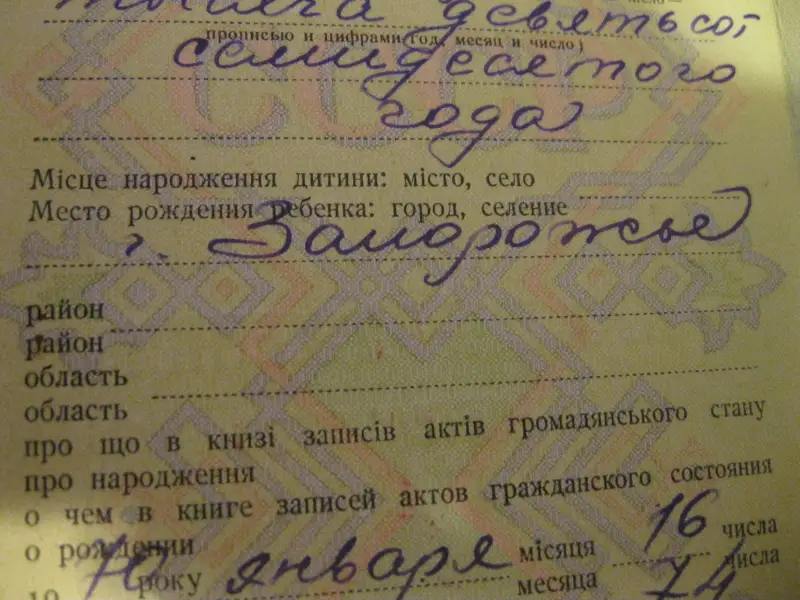 тысяча девятьсот
прописью и цифрами (год, месяц и число)
семидесятого
года
СССР
Місце народження дитини: місто, село
Место рождения ребенка: город, селение
г. Запорожье
район
район
область
область
про що в книзі записів актів громадянського стану
про народження
о чем в книге записей актов гражданского состояния
о рождении
19 70 року января місяця 16 числа
месяца числа